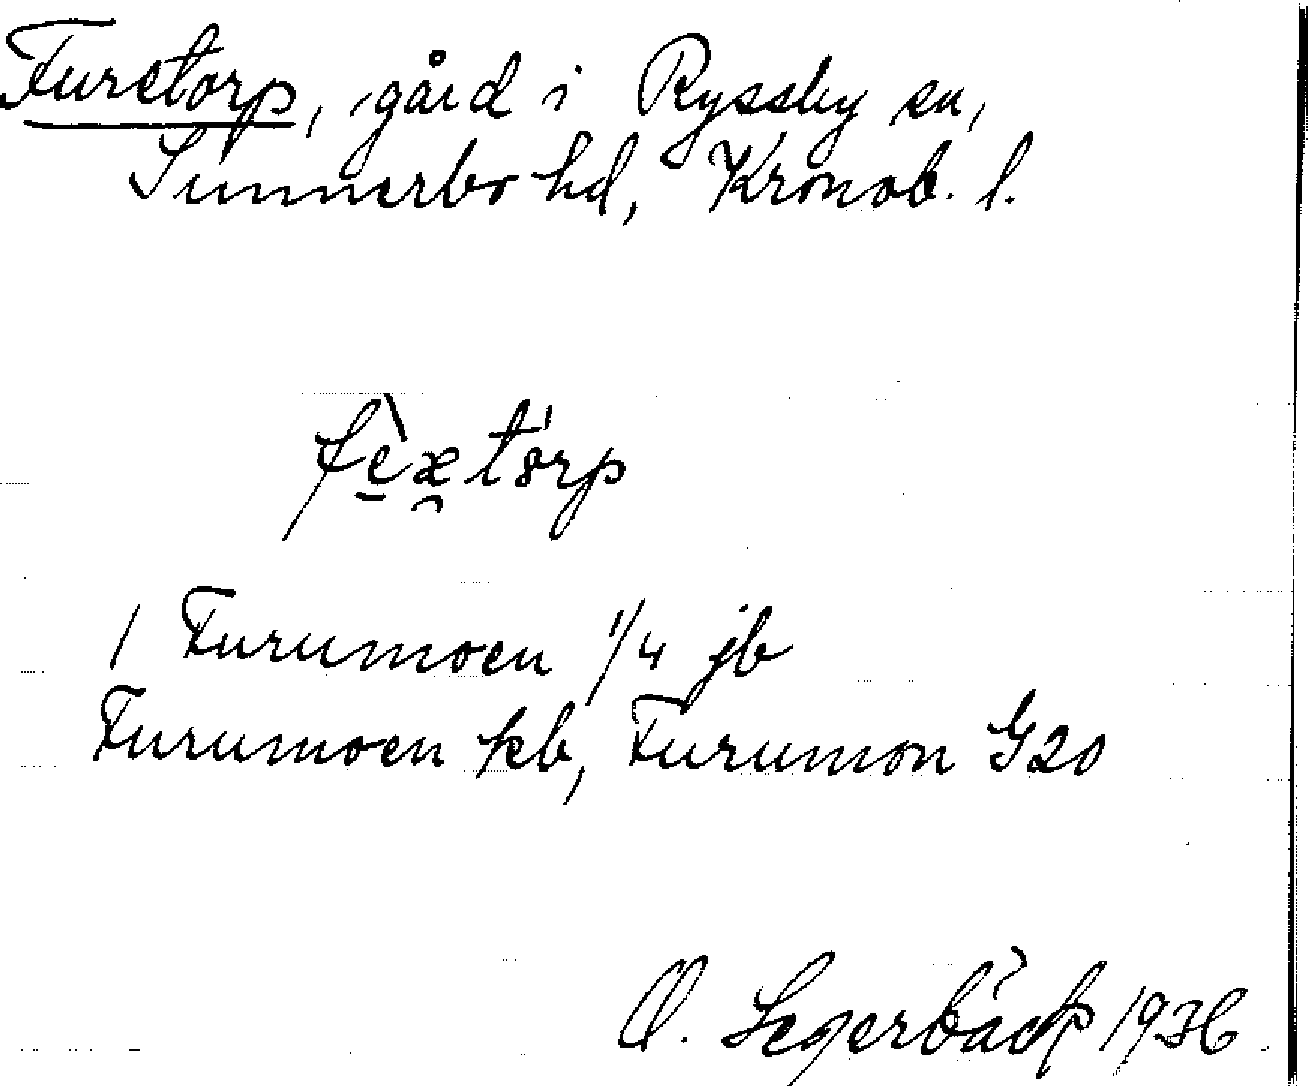 Furetorp, gård i Ryssby sn,
Sunnerbo hd, Kronob. l.
1 Furumoen 1/4 jb
Furumoen kb, Furumon G20
O. Segerbäck 1936